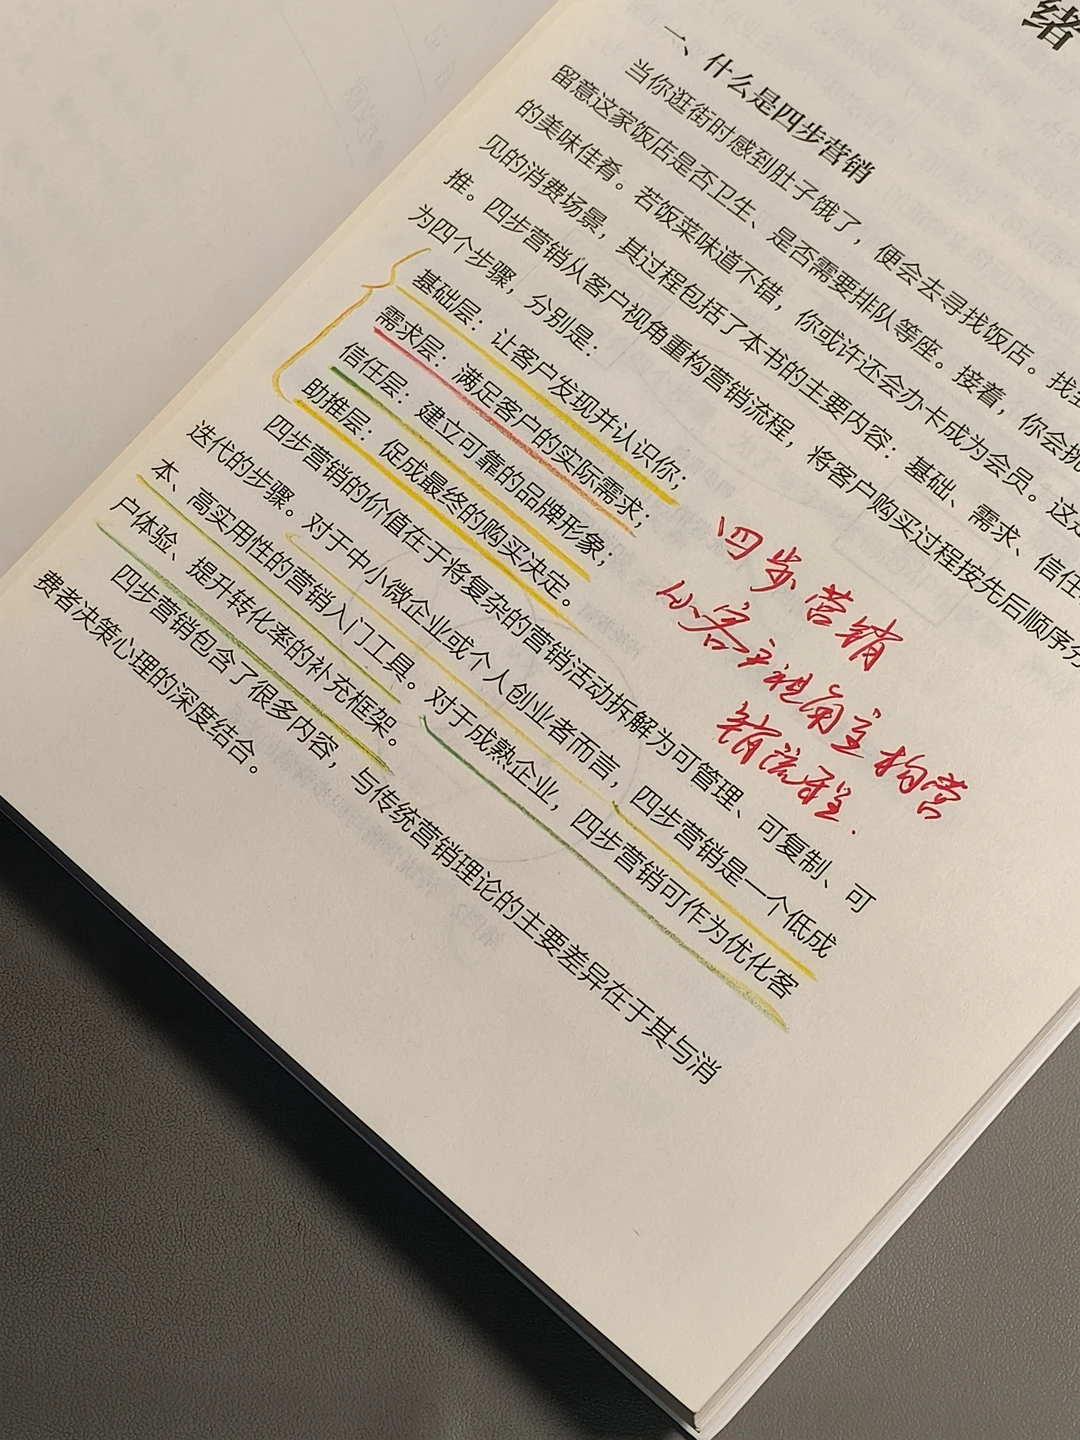 绪
一、什么是四步营销
当你逛街时感到肚子饿了，便会去寻找饭店。找到
留意这家饭店是否卫生、是否需要排队等座。接着，你会挑
的美味佳肴。若饭菜味道不错，你或许还会办卡成为会员。这是
见的消费场景，其过程包括了本书的主要内容：基础、需求、信任
推。四步营销从客户视角重构营销流程，将客户购买过程按先后顺序分
为四个步骤，分别是：
基础层：让客户发现并认识你；
需求层：满足客户的实际需求；
信任层：建立可靠的品牌形象；
助推层：促成最终的购买决定。
四步营销的价值在于将复杂的营销活动拆解为可管理、可复制、可
迭代的步骤。对于中小微企业或个人创业者而言，四步营销是一个低成
本、高实用性的营销入门工具。对于成熟企业，四步营销可作为优化客
户体验、提升转化率的补充框架。
四步营销包含了很多内容，与传统营销理论的主要差异在于其与消
费者决策心理的深度结合。
四步营销
从客户视角重构营
销流程.